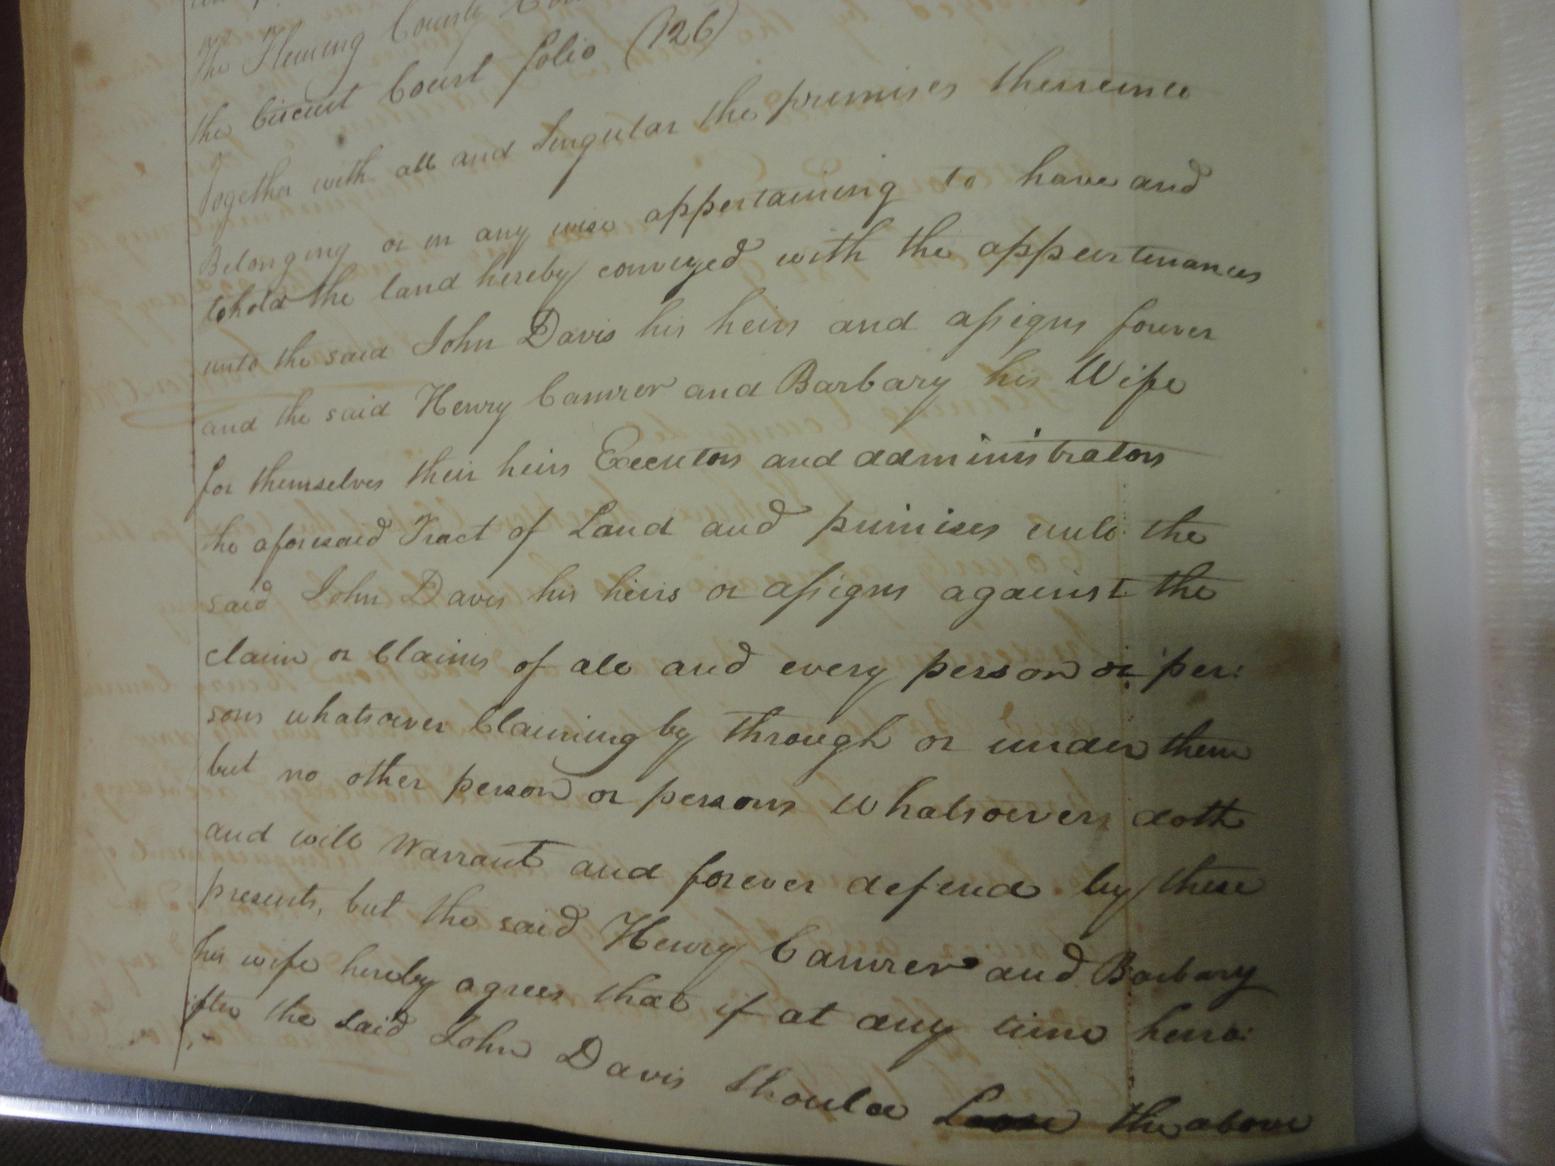 the Fleming County
the Circuit Court folio (126)
Together with all and Singular the premises thereunto
Belonging or in any wise appertaining to have and
tohold the land hereby conveyed with the appurtenances
unto the said John Davis his heirs and assigns forever
and the said Henry Camrer and Barbary his Wife
for themselves their heirs Executors and administrators
the aforesaid Tract of Land and primises unto the
said John Davis his heirs or assigns against the
claim or Claims of all and every person or per:
sons whatsoever Claiming by through or under them
but no other person or persons whatsoever doth
and will warrant and forever defend by these
presents, but the said Henry Camrer and Barbary
his wife hereby agrees that if at any time herea:
fter the said John Davis Should Loose the above